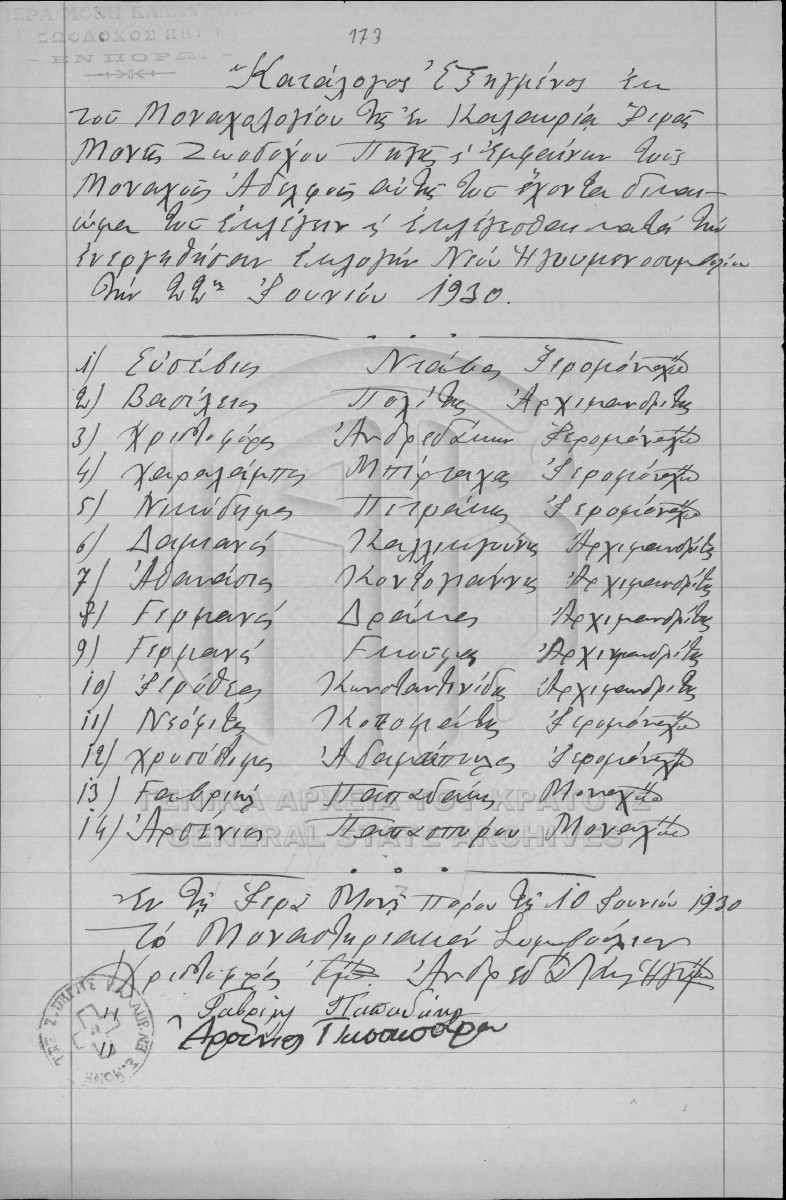 ΙΕΡΑ ΜΟΝΗ ΚΑΛΑΥΡΙΑΣ
ΖΩΟΔΟΧΟΣ ΠΗΓΗ
- ΕΝ ΠΟΡΩ. -
173
Κατάλογος Ἐξηγμένος ἐκ
τοῦ Μοναχολογίου τῆς ἐν Καλαυρίᾳ Ἱερᾶς
Μονῆς Ζωοδόχου Πηγῆς & ἐμφαίνων τοὺς
Μοναχοὺς Ἀδελφοὺς αὐτῆς τοὺς ἔχοντας δικαι-
ώμα τοῦ ἐκλέγειν & ἐκλέγεσθαι κατὰ τὴν
ἐνεργηθῆσαν ἐκλογὴν Νέου Ἡγουμενοσυμβουλίου
τὴν 22αν Ἰουνίου 1930.
1) Εὐσέβιος Ἱερομόναχος
2) Βασίλειος Πολίτης Ἀρχιμανδρίτης
3) Χριστοφόρος Ἀνδρεδάκης Ἱερομόναχος
4) Χαραλάμπης Μπίρταχας Ἱερομόναχος
5) Νικόδημος Πετράκης Ἱερομόναχος
6) Δαμιανὸς Καλλικγούνης Ἀρχιμανδρίτης
7) Ἀθανάσιος Κοντογιάννης Ἀρχιμανδρίτης
8) Γερμανὸς Δράκος Ἀρχιμανδρίτης
9) Γερμανὸς Γκούμας Ἀρχιμανδρίτης
10) Ἱερόθεος Κωνσταντινίδης Ἀρχιμανδρίτης
11) Νεόφυτος Ἱερομόναχος
12) Χρυσόστομος Ἀδαμόπουλος Ἱερομόναχος
13) Γαβριὴλ Παπαδάκης Μοναχὸς
14) Ἀρσένιος Παπασπύρου Μοναχὸς
ΓΕΝΙΚΑ ΑΡΧΕΙΑ ΤΟΥ ΚΡΑΤΟΥΣ
GENERAL STATE ARCHIVES
Ἐν τῇ Ἱερᾷ Μονῇ Πόρου τῇ 10 Ἰουνίου 1930
Τὸ Μοναστηριακὸν Συμβούλιον
Χριστοφόρος Ἀνδρεδάκης Ἡγούμενος
Γαβριὴλ Παπαδάκης
Ἀρσένιος Παπασπύρου